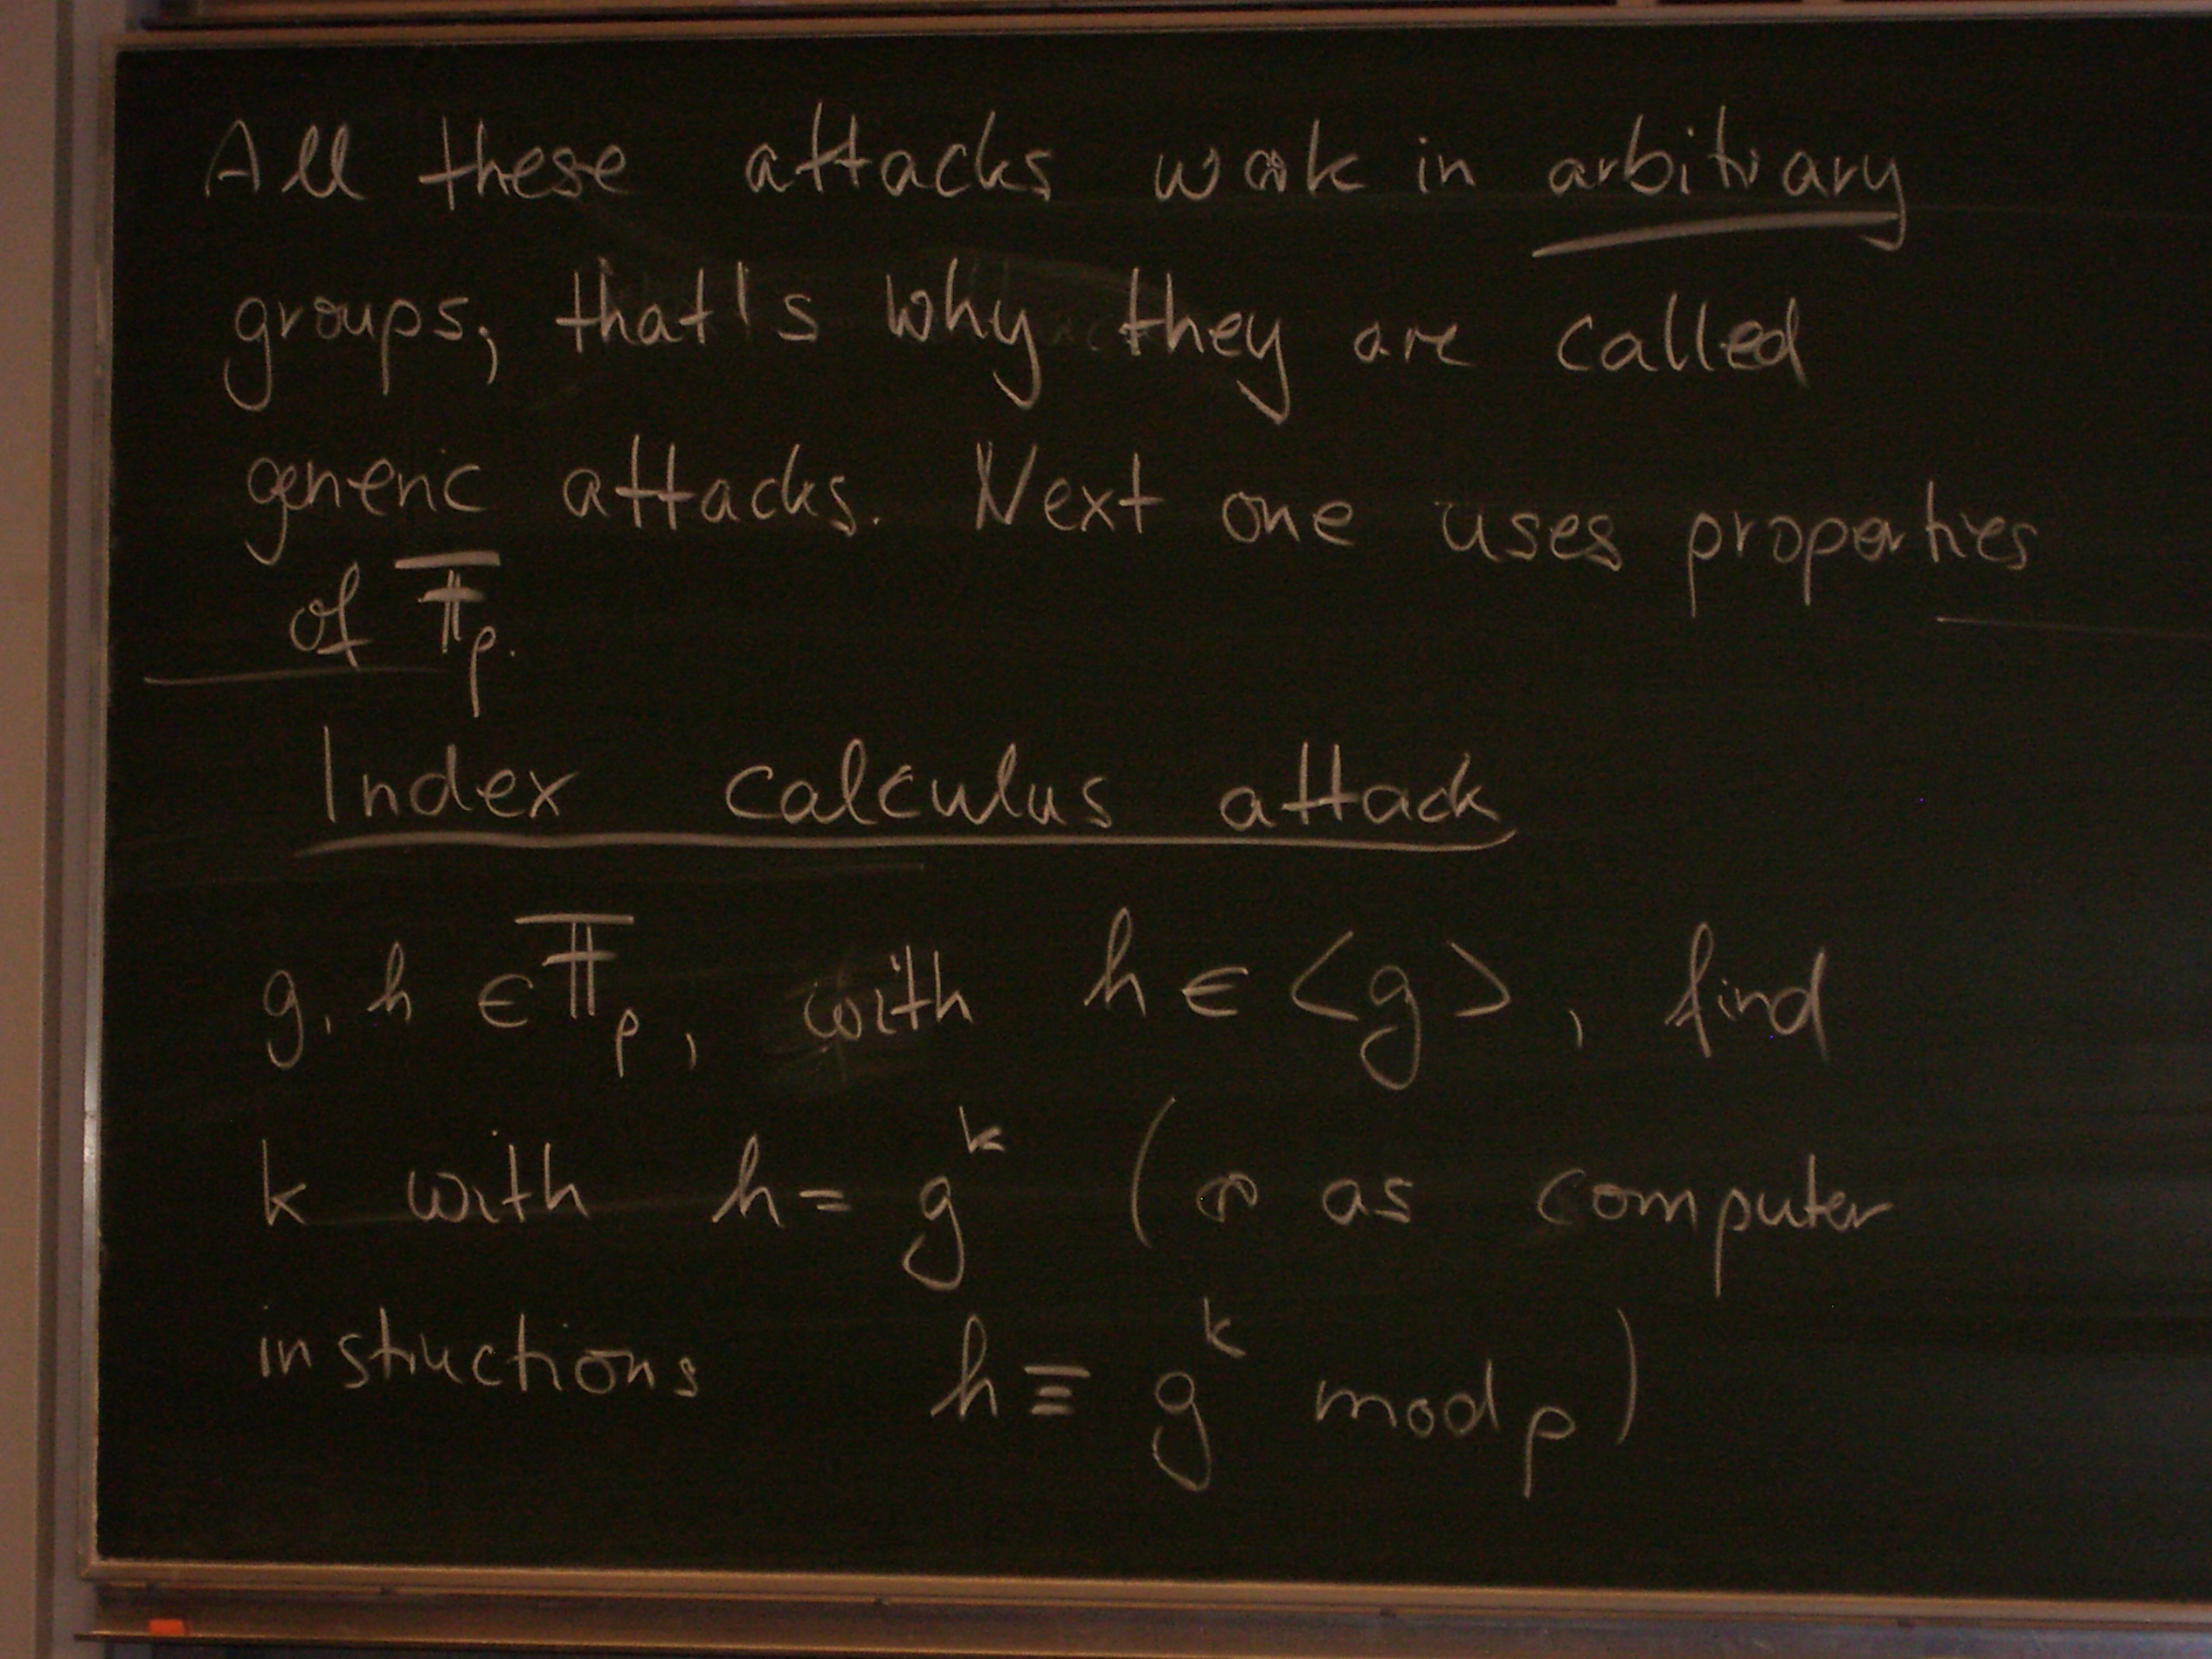 All these attacks work in arbitrary
groups; that's why they are called
generic attacks. Next one uses properties
of 𝔽ₚ.
Index calculus attack
g, h ∈ 𝔽ₚ, with h ∈ <g>, find
k with h = gᵏ (or as computer
instructions h ≡ gᵏ mod p)